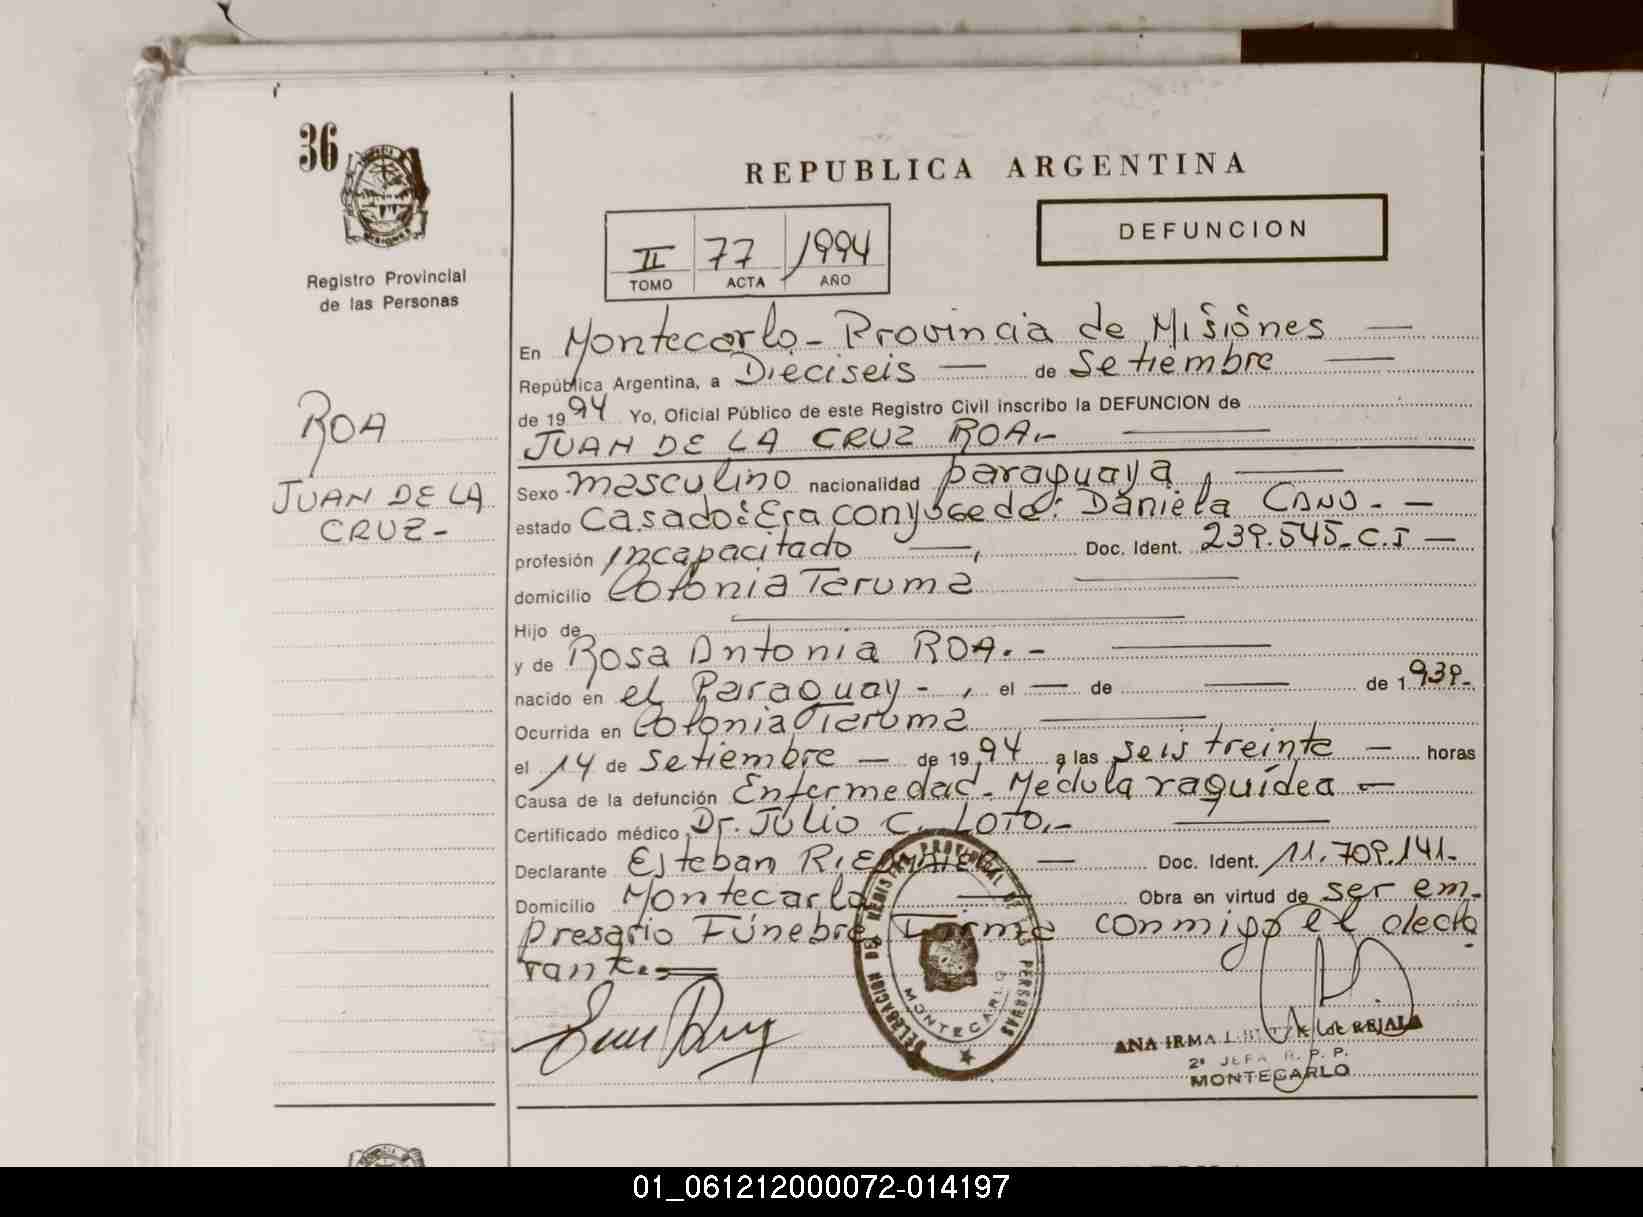 36
Registro Provincial
de las Personas
ROA
JUAN DE LA
CRUZ-
REPUBLICA ARGENTINA
II 77 1994
TOMO ACTA AÑO
DEFUNCION
En Montecarlo - Provincia de Misiones
República Argentina, a Dieciseis de Setiembre
de 1994 Yo, Oficial Público de este Registro Civil inscribo la DEFUNCION de
JUAN DE LA CRUZ ROA.-
Sexo masculino nacionalidad paraguaya,
estado Casado: Era conyuge de: Daniela CANO.-
profesión incapacitado, Doc. Ident. 239.545-C.I
domicilio Colonia Taruma
Hijo de
y de Rosa Antonia ROA.-
nacido en el Paraguay-, el de de 1939-
Ocurrida en Colonia Taruma
el 14 de setiembre de 1994 a las seis treinta horas
Causa de la defunción Enfermedad-Medula raquídea
Certificado médico Dr. Julio C. LOTO.-
Declarante Esteban Doc. Ident. 11.709.141-
Domicilio Montecarlo Obra en virtud de ser em-
presario Fúnebre Firma conmigo el decla
rante.
DELEGACION DEL REGISTRO PROVINCIAL DE LAS PERSONAS
MONTECARLO
ANA IRMA de REJALA
2ª JEFA R. P. P.
MONTECARLO
01_061212000072-014197